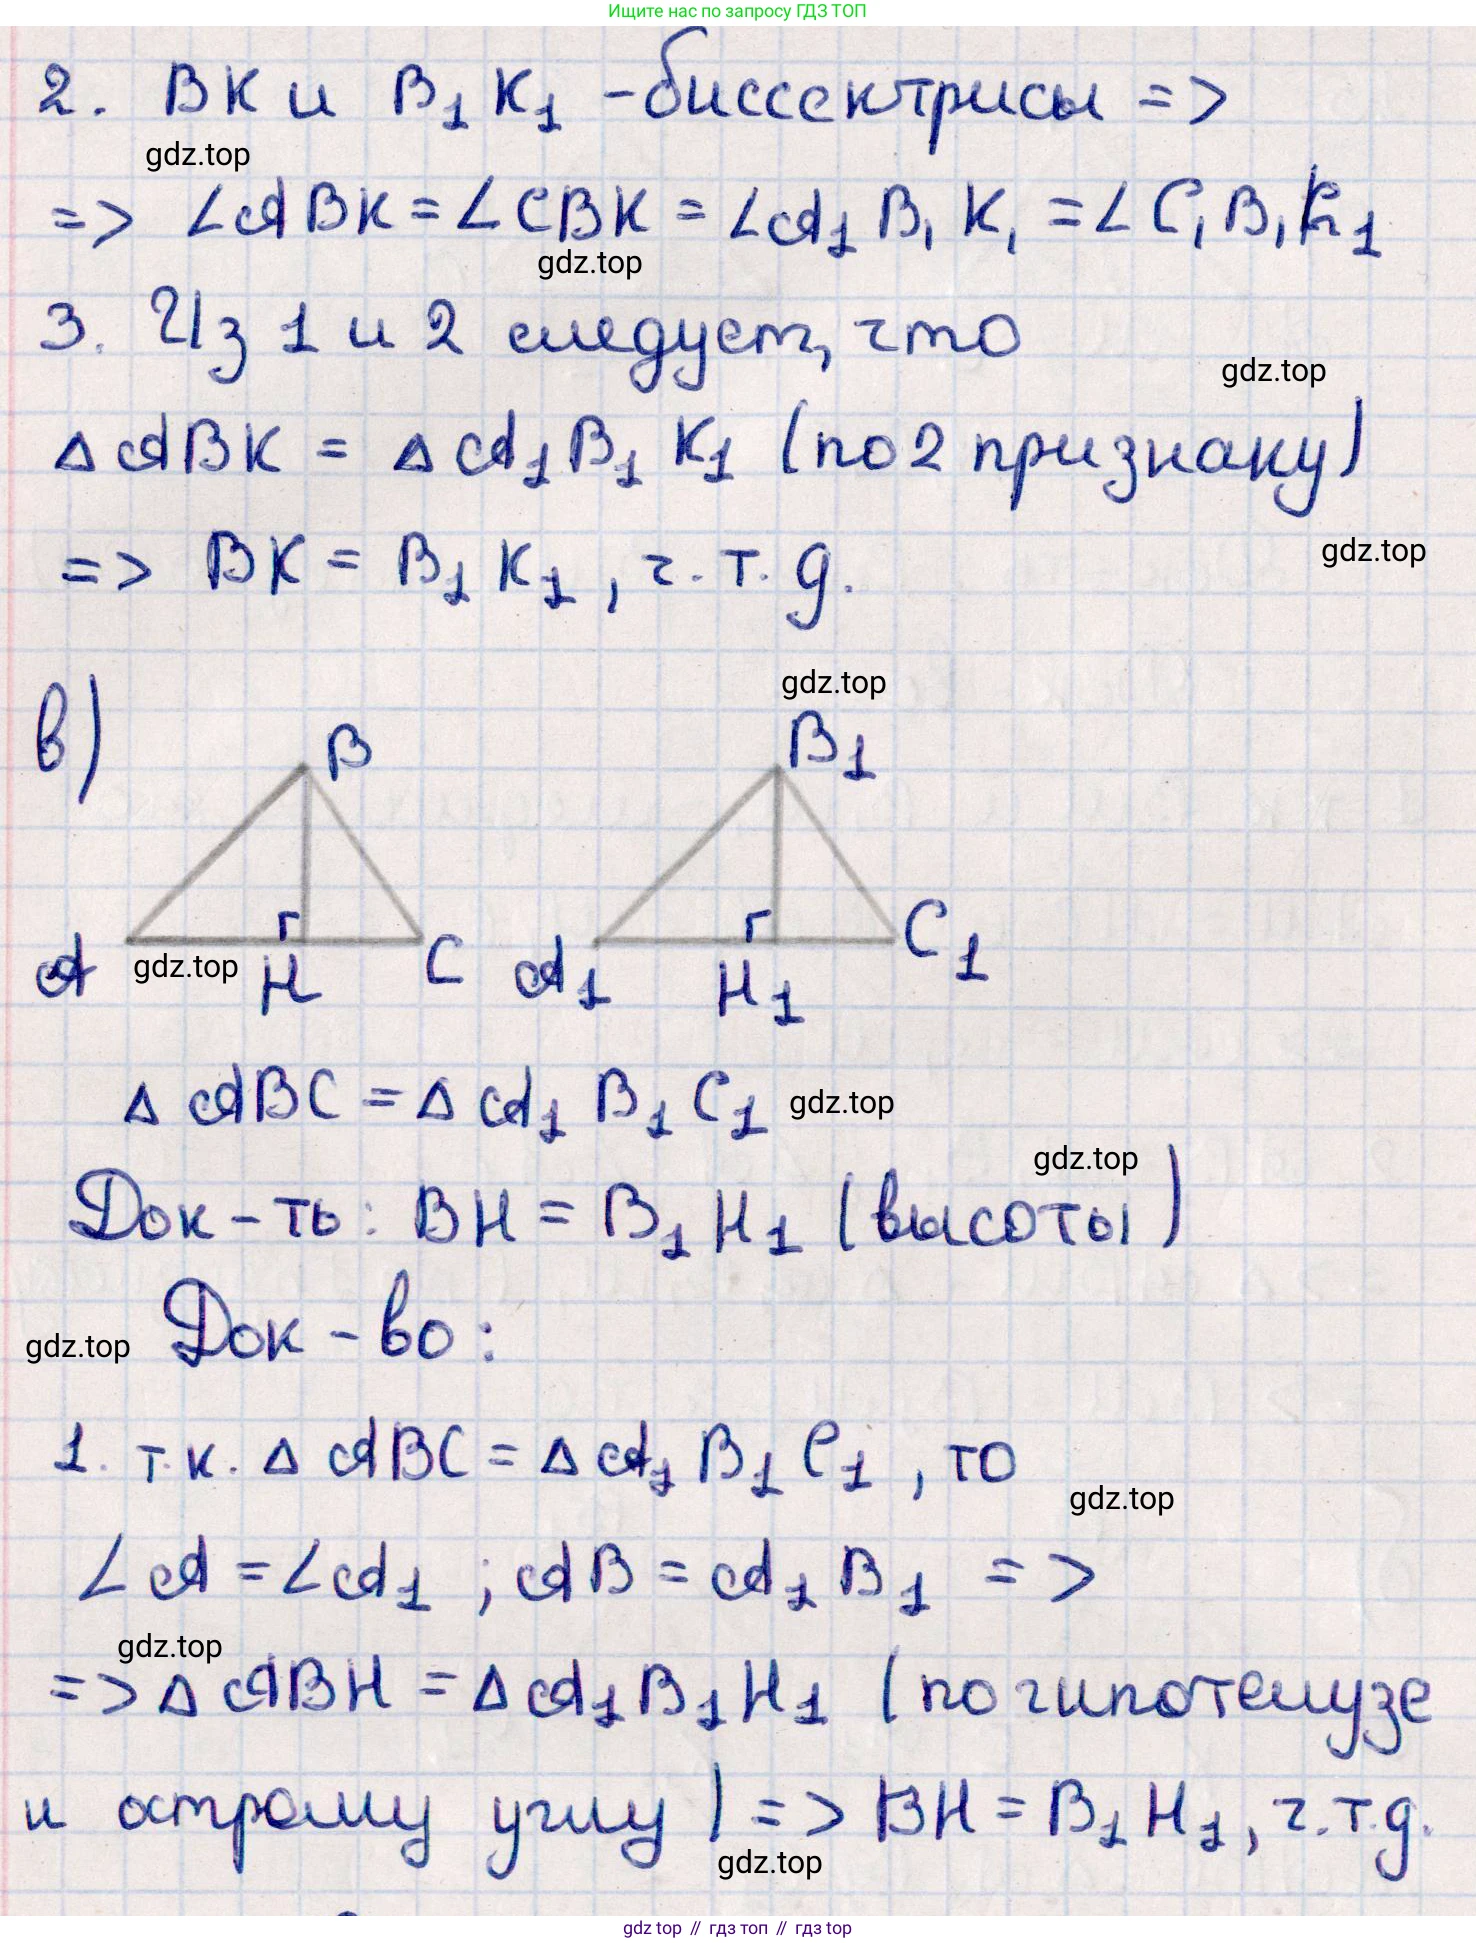 Ищите нас по запросу ГДЗ ТОП
2. BK и B₁K₁ - биссектрисы =>
gdz.top
=> ∠ABK = ∠CBK = ∠A₁B₁K₁ = ∠C₁B₁K₁
gdz.top
3. Из 1 и 2 следует, что
gdz.top
△ABK = △A₁B₁K₁ (по 2 признаку)
gdz.top
=> BK = B₁K₁, ч.т.д.
gdz.top
в)
B B₁
A gdz.top H C A₁ H₁ C₁
△ABC = △A₁B₁C₁ gdz.top
gdz.top
Док-ть: BH = B₁H₁ (высоты)
gdz.top Док-во:
1. т.к. △ABC = △A₁B₁C₁, то
gdz.top
∠A = ∠A₁; AB = A₁B₁ =>
gdz.top
=> △ABH = △A₁B₁H₁ (по гипотенузе
и острому углу) => BH = B₁H₁, ч.т.д.
gdz.top
gdz top // гдз топ // гдз top